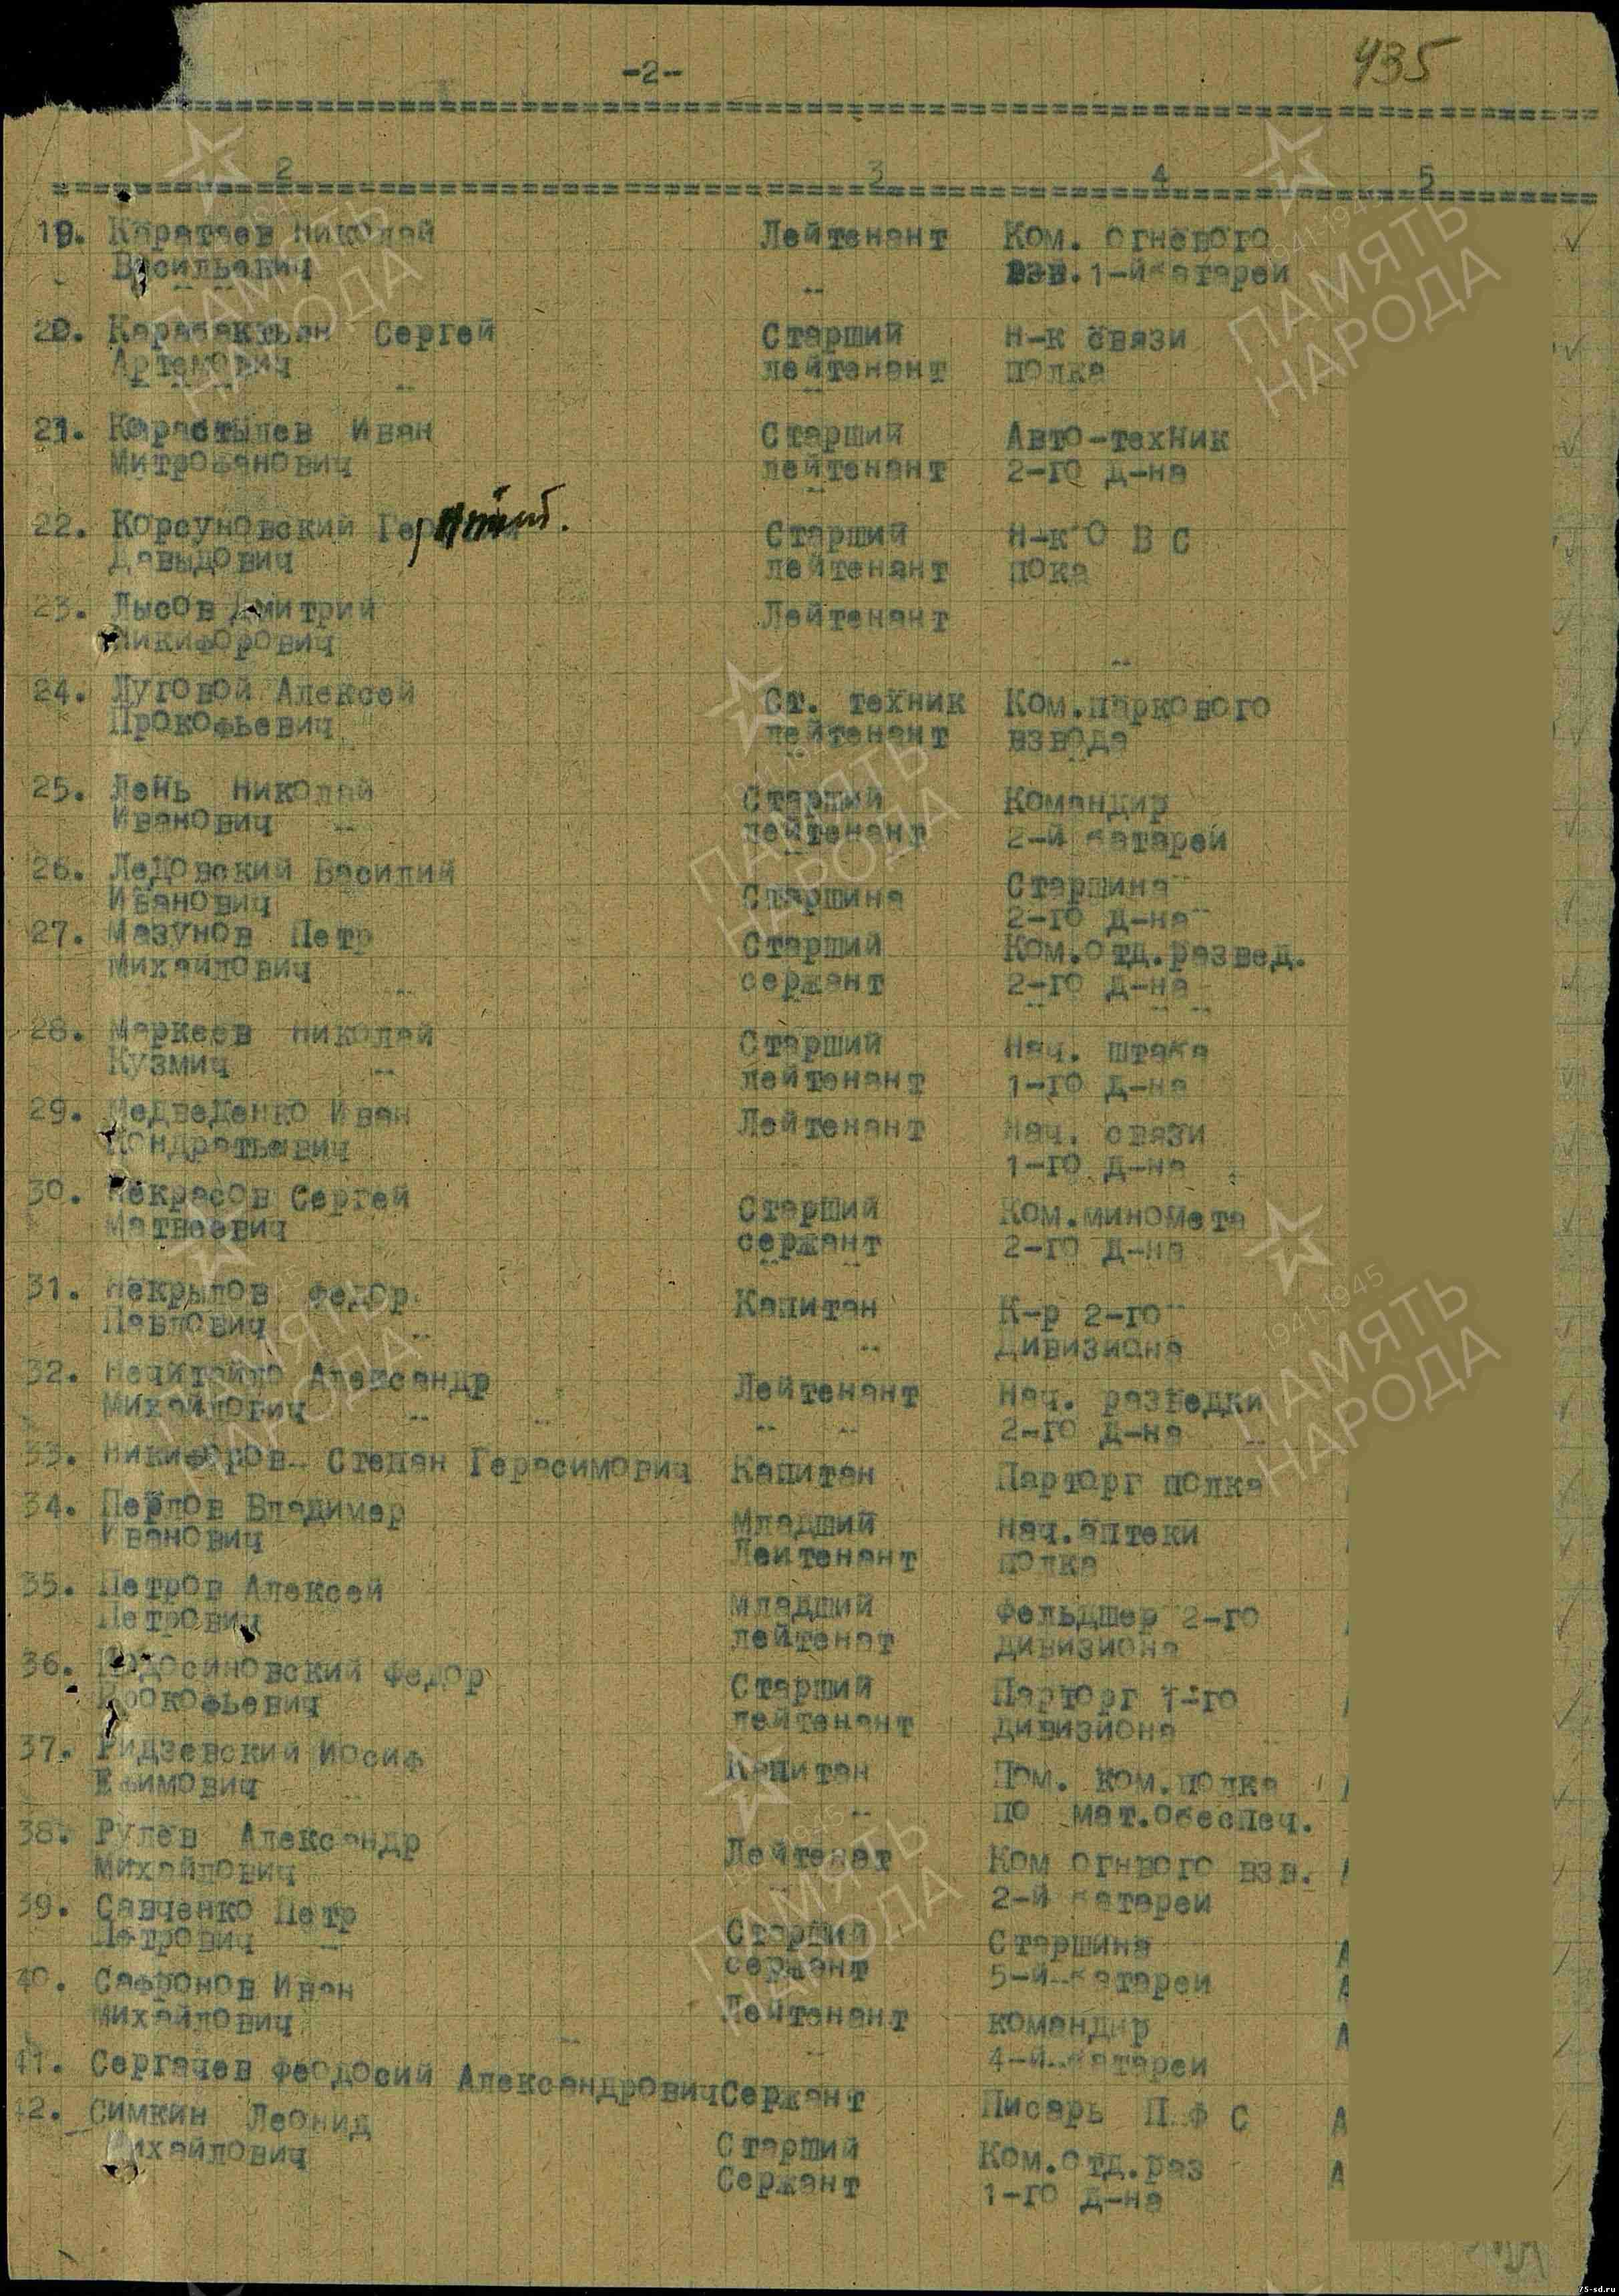 -2-
435
2 3 4 5
19. Каратаев Николай Лейтенант Ком. огневого
Васильевич взв. 1-й батареи
20. Сергей Старший Н-к связи
Артемович лейтенант полка
21. Карастылев Иван Старший Авто-техник
Митрофанович лейтенант 2-го д-на
22. Корсуновский Старший Н-к О В С
Давыдович лейтенант пока
23. Лысов Дмитрий Лейтенант
Никифорович
24. Луговой Алексей Ст. техник Ком.паркового
Прокофьевич лейтенант взвода
25. Лень Николай Старший Командир
Иванович лейтенант 2-й батареи
26. Ледовский Василий Старшина Старшина
Иванович 2-го д-на
27. Мазунов Петр Старший Ком.отд.развед.
Михайлович сержант 2-го д-на
28. Маркеев Николай Старший Нач. штаба
Кузмич лейтенант 1-го д-на
29. Медведенко Иван Лейтенант Нач. связи
Кондратьевич 1-го д-на
30. Некрасов Сергей Старший Ком.миномета
Матвеевич сержант 2-го д-на
31. Некрылов Федор Капитан К-р 2-го
Павлович Дивизиона
32. Нечитайло Александр Лейтенант Нач. разведки
Михайлович 2-го д-на
33. Никифоров Степан Герасимович Капитан Парторг полка
34. Перлов Владимер Младший Нач.аптеки
Иванович Лейтенант полка
35. Петров Алексей Младший Фельдшер 2-го
Петрович лейтенат дивизиона
36. Подосиновский Федор Старший Парторг 1-го
Прокофьевич лейтенант дивизиона
37. Ридзевский Иосиф Капитан Пом. ком.полка
Ефимович по мат.обеспеч.
38. Рулев Александр Лейтенат Ком огнвого взв.
Михайлович 2-й батареи
39. Савченко Петр Старший Старшина
Петрович сержант 5-й батареи
40. Сафронов Иван Лейтенант командир
Михайлович 4-й батареи
41. Сергачев Феодосий Александрович Сержант Писарь П Ф С
42. Симкин Леонид Старший Ком.отд.раз
Михайлович Сержант 1-го д-на
ПАМЯТЬ
НАРОДА
1941-1945
75-sd.ru